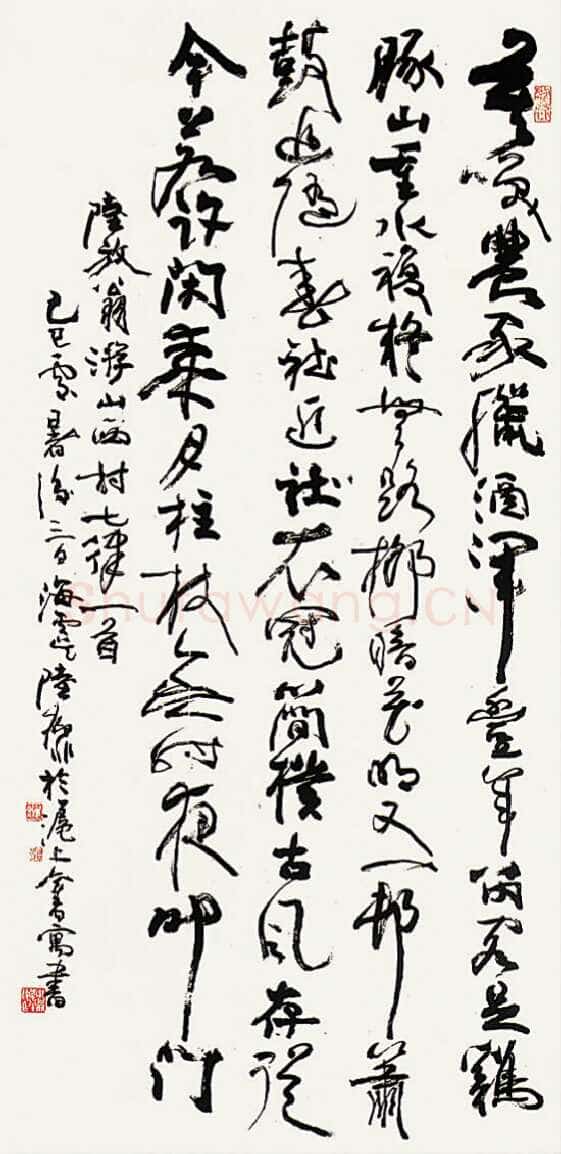 莫笑農家臘酒渾豐年留客足雞
豚山重水複疑無路柳暗花明又一邨簫
鼓追隨春社近社衣冠簡樸古風存從
今若許閑乘月柱杖無時夜叩門
陸放翁游山西村七律一首
己巳處暑後三日海虞陸抑非於滬上寓書
Shufawang.CN